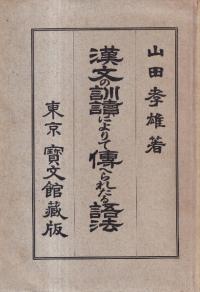 山田孝雄著
漢文の訓讀によりて傳へられたる語法
東京 寶文館藏版